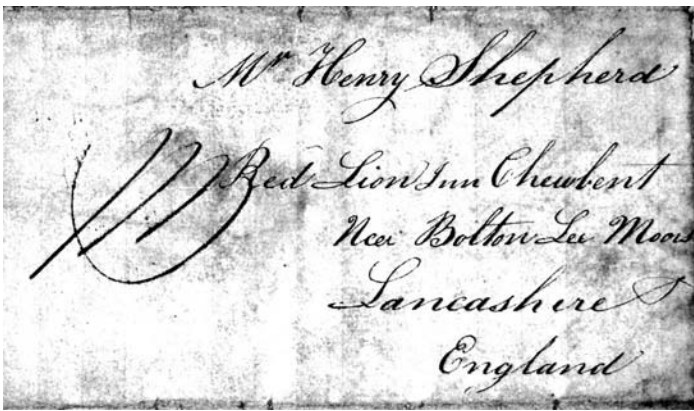 Mr Henry Shepherd
Red Lion Inn Chewbent
Near Bolton Lee Moors
Lancashire
England